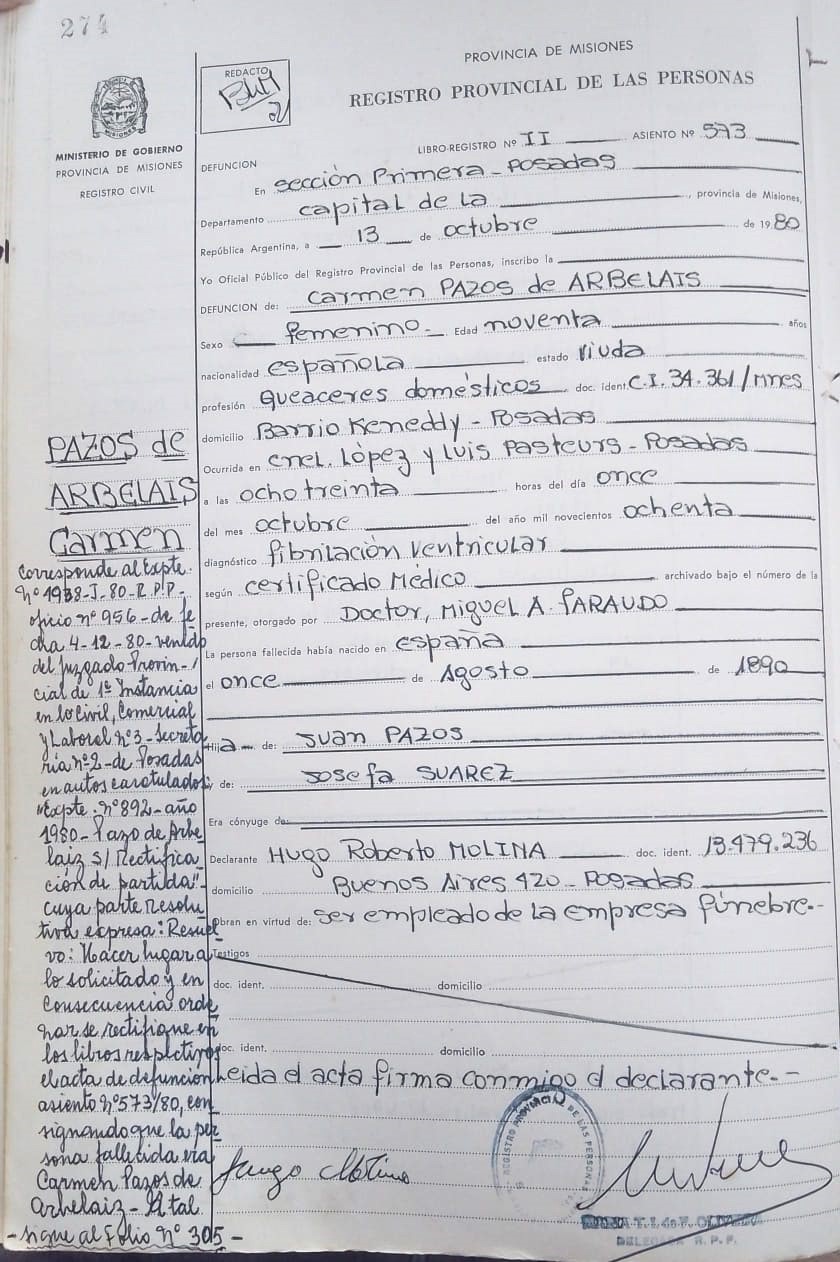 274
PROVINCIA DE MISIONES
REGISTRO PROVINCIAL DE LAS PERSONAS
REDACTO
MINISTERIO DE GOBIERNO
PROVINCIA DE MISIONES
REGISTRO CIVIL
LIBRO-REGISTRO Nº II ASIENTO Nº 573
DEFUNCION
En sección Primera - Posadas
Departamento capital de La , provincia de Misiones,
República Argentina, a 13 de octubre de 1980
Yo Oficial Público del Registro Provincial de las Personas, inscribo la
DEFUNCION de: Carmen PAZOS de ARBELAIS
Sexo femenino.- Edad noventa años
nacionalidad española estado viuda
profesión queaceres domésticos doc. ident. C.I. 34.361/mnes
domicilio Barrio Keneddy - Posadas
Ocurrida en enel. López y Luis Pasteurs - Posadas
a las ocho treinta horas del día once
del mes octubre del año mil novecientos ochenta
diagnóstico fibrilación ventricular
según certificado Médico archivado bajo el número de la
presente, otorgado por Doctor, Miguel A. PARAUDO
La persona fallecida había nacido en españa
el once de Agosto de 1890
Hija de: Juan PAZOS
y de: Josefa SUAREZ
Era cónyuge de:
Declarante Hugo Roberto MOLINA doc. ident. 13.479.236
domicilio Buenos Aires 420 - Posadas
Obran en virtud de: ser empleado de la empresa fúnebre.-
Testigos
doc. ident. domicilio
doc. ident. domicilio
Leida el acta firma conmigo el declarante.-
PAZOS de
ARBELAIS
Carmen
Corresponde al Expte.
nº 1938-J-80-R.P.P-
oficio nº 956-de fe
cha 4-12-80-venido
del Juzgado Provin-
cial de 1º Instancia
en lo Civil, Comercial
y Laboral nº3-Secreta
ria nº2-de Posadas
en autos caratulados
"Expte. nº892-año
1980-Pazo de Arbe
laiz s/ Rectifica
ción de partida"-
cuya parte resolu
tiva expresa: Resuel
vo: Hacer lugar a
lo solicitado y en
Consecuencia orde
nar se rectifique en
los libros respectivos
el acta de defunción
asiento nº573/80, con
signando que la per
sona fallecida era
Carmen Pazos de
Arbelaiz - A tal
- sigue al folio nº 305 -
REGISTRO PROVINCIAL DE LAS PERSONAS
DELEGADA R.P.P.